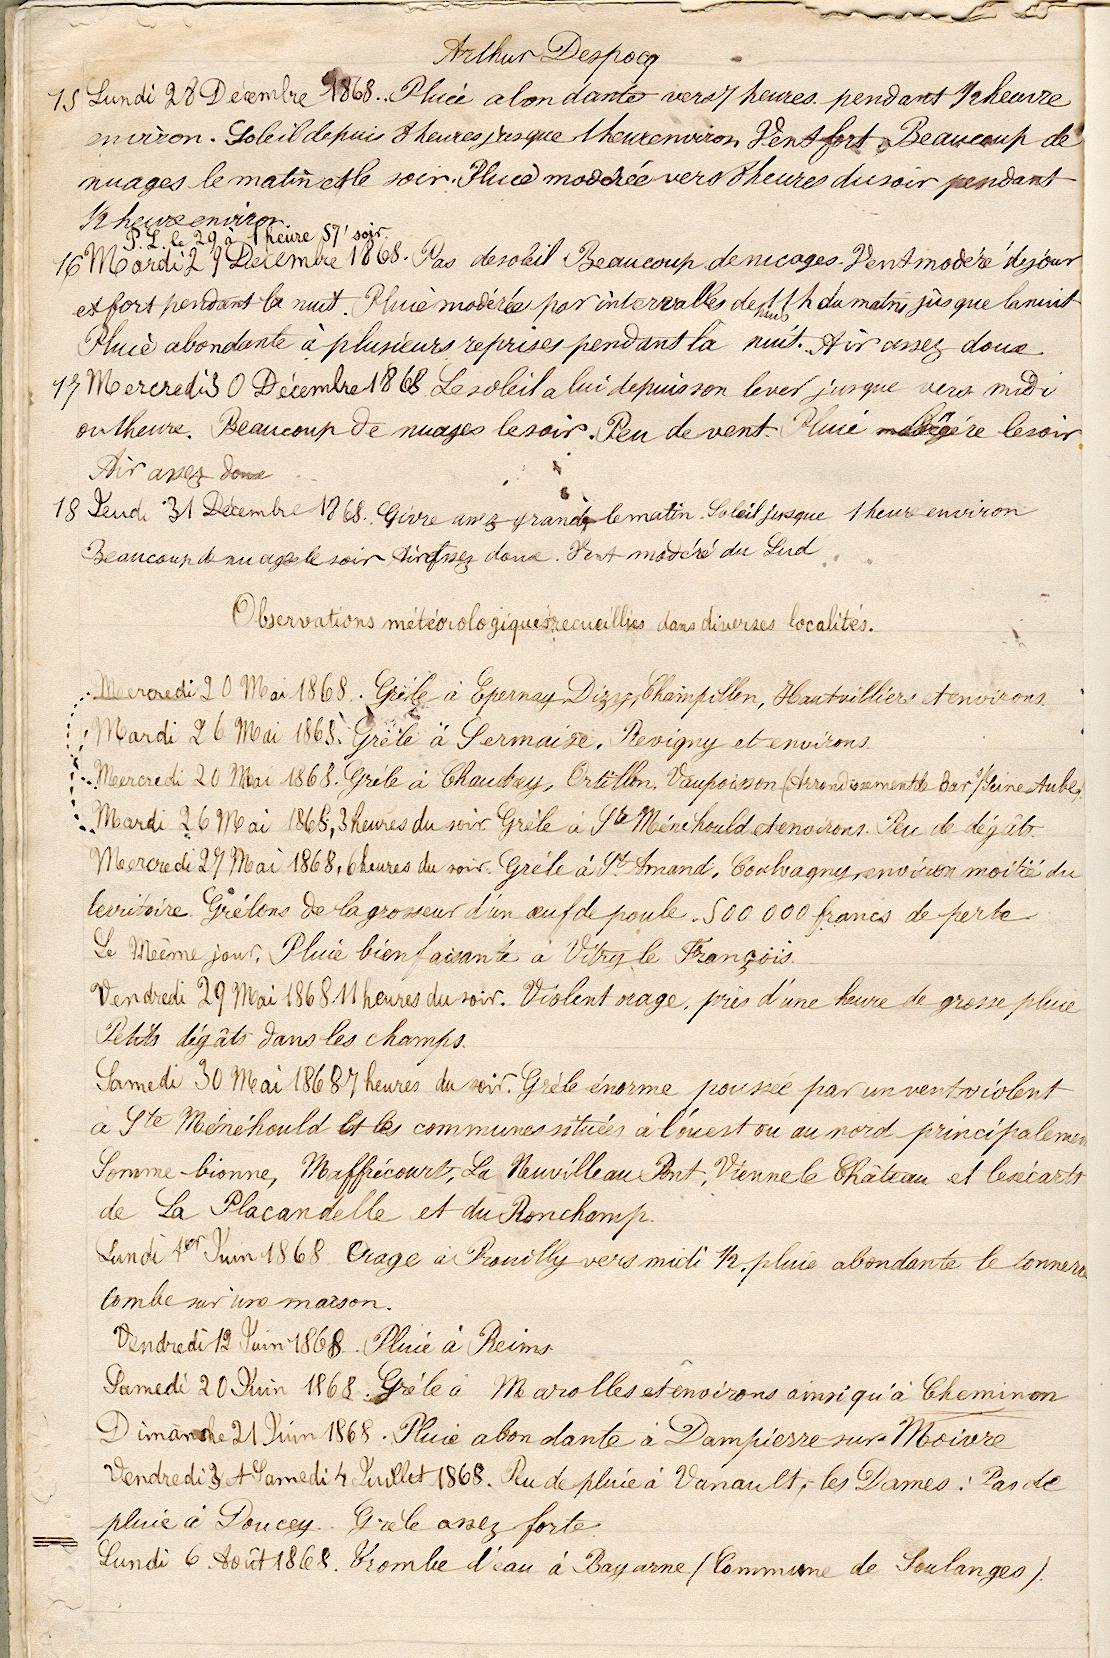 Arthur Despocq
15 Lundi 28 Décembre 1868. Pluie abondante vers 7 heures pendant 1/2 heure
environ. Soleil depuis 8 heures jusque 1 heure environ Vent fort. Beaucoup de
nuages le matin et le soir. Pluie modérée vers 8 heures du soir pendant
1/2 heure environ
P.L. le 29 à 1 heure 57' soir.
16 Mardi 29 Décembre 1868. Pas de soleil Beaucoup de nuages. Vent modéré de jour
et fort pendant la nuit. Pluie modérée par intervalles depuis 11 h du matin jusque la nuit
Pluie abondante à plusieurs reprises pendant la nuit. Air assez doux
17 Mercredi 30 Décembre 1868 Le soleil a lui depuis son lever jusque vers midi
ou 1 heure. Beaucoup de nuages le soir. Peu de vent. Pluie légère le soir
Air assez doux
18 Jeudi 31 Décembre 1868. Givre assez grande le matin. Soleil jusque 1 heure environ
Beaucoup de nuages le soir Air assez doux. Vent modéré du Sud
Observations météorologiques recueillies dans diverses localités.
Mercredi 20 Mai 1868. Grêle à Epernay, Dizy, Champillon, Hautvilliers et environs
Mardi 26 Mai 1868. Grêle à Sermaize, Revigny et environs.
Mercredi 20 Mai 1868. Grêle à Chaudrey, Ortillon, Vaupoisson (Arrondissement de Bar s/ Seine Aube).
Mardi 26 Mai 1868, 3 heures du soir Grêle à Ste Ménéhould et environs. Peu de dégâts.
Mercredi 27 Mai 1868, 6 heures du soir. Grêle à St Amand, Coulvagny, environ moitié du
territoire. Grêlons de la grosseur d'un œuf de poule. 500 000 francs de perte
Le Même jour. Pluie bienfaisante à Vitry le François.
Vendredi 29 Mai 1868 11 heures du soir. Violent orage, près d'une heure de grosse pluie
Petits dégâts dans les champs.
Samedi 30 Mai 1868 7 heures du soir. Grêle énorme poussée par un vent violent
à Ste Ménéhould et les communes situées à l'ouest ou au nord principalemen
Somme-bionne, Maffrécourt, La Neuville au Pont, Vienne le Château et les écarts
de La Placardelle et du Ronchamp.
Lundi 1er Juin 1868 Orage à Prouilly vers midi 1/2, pluie abondante le tonnerre
tombe sur une maison.
Vendredi 12 Juin 1868. Pluie à Reims
Samedi 20 Juin 1868. Grêle à Marolles et environs ainsi qu'à Cheminon
Dimanche 21 Juin 1868. Pluie abondante à Dampierre-sur-Moivre
Vendredi 3 et Samedi 4 Juillet 1868. Peu de pluie à Vanault, les Dames: Pas de
pluie à Doucey. Grêle assez forte
Lundi 6 Août 1868. Trombe d'eau à Bayarne (Commune de Soulanges).